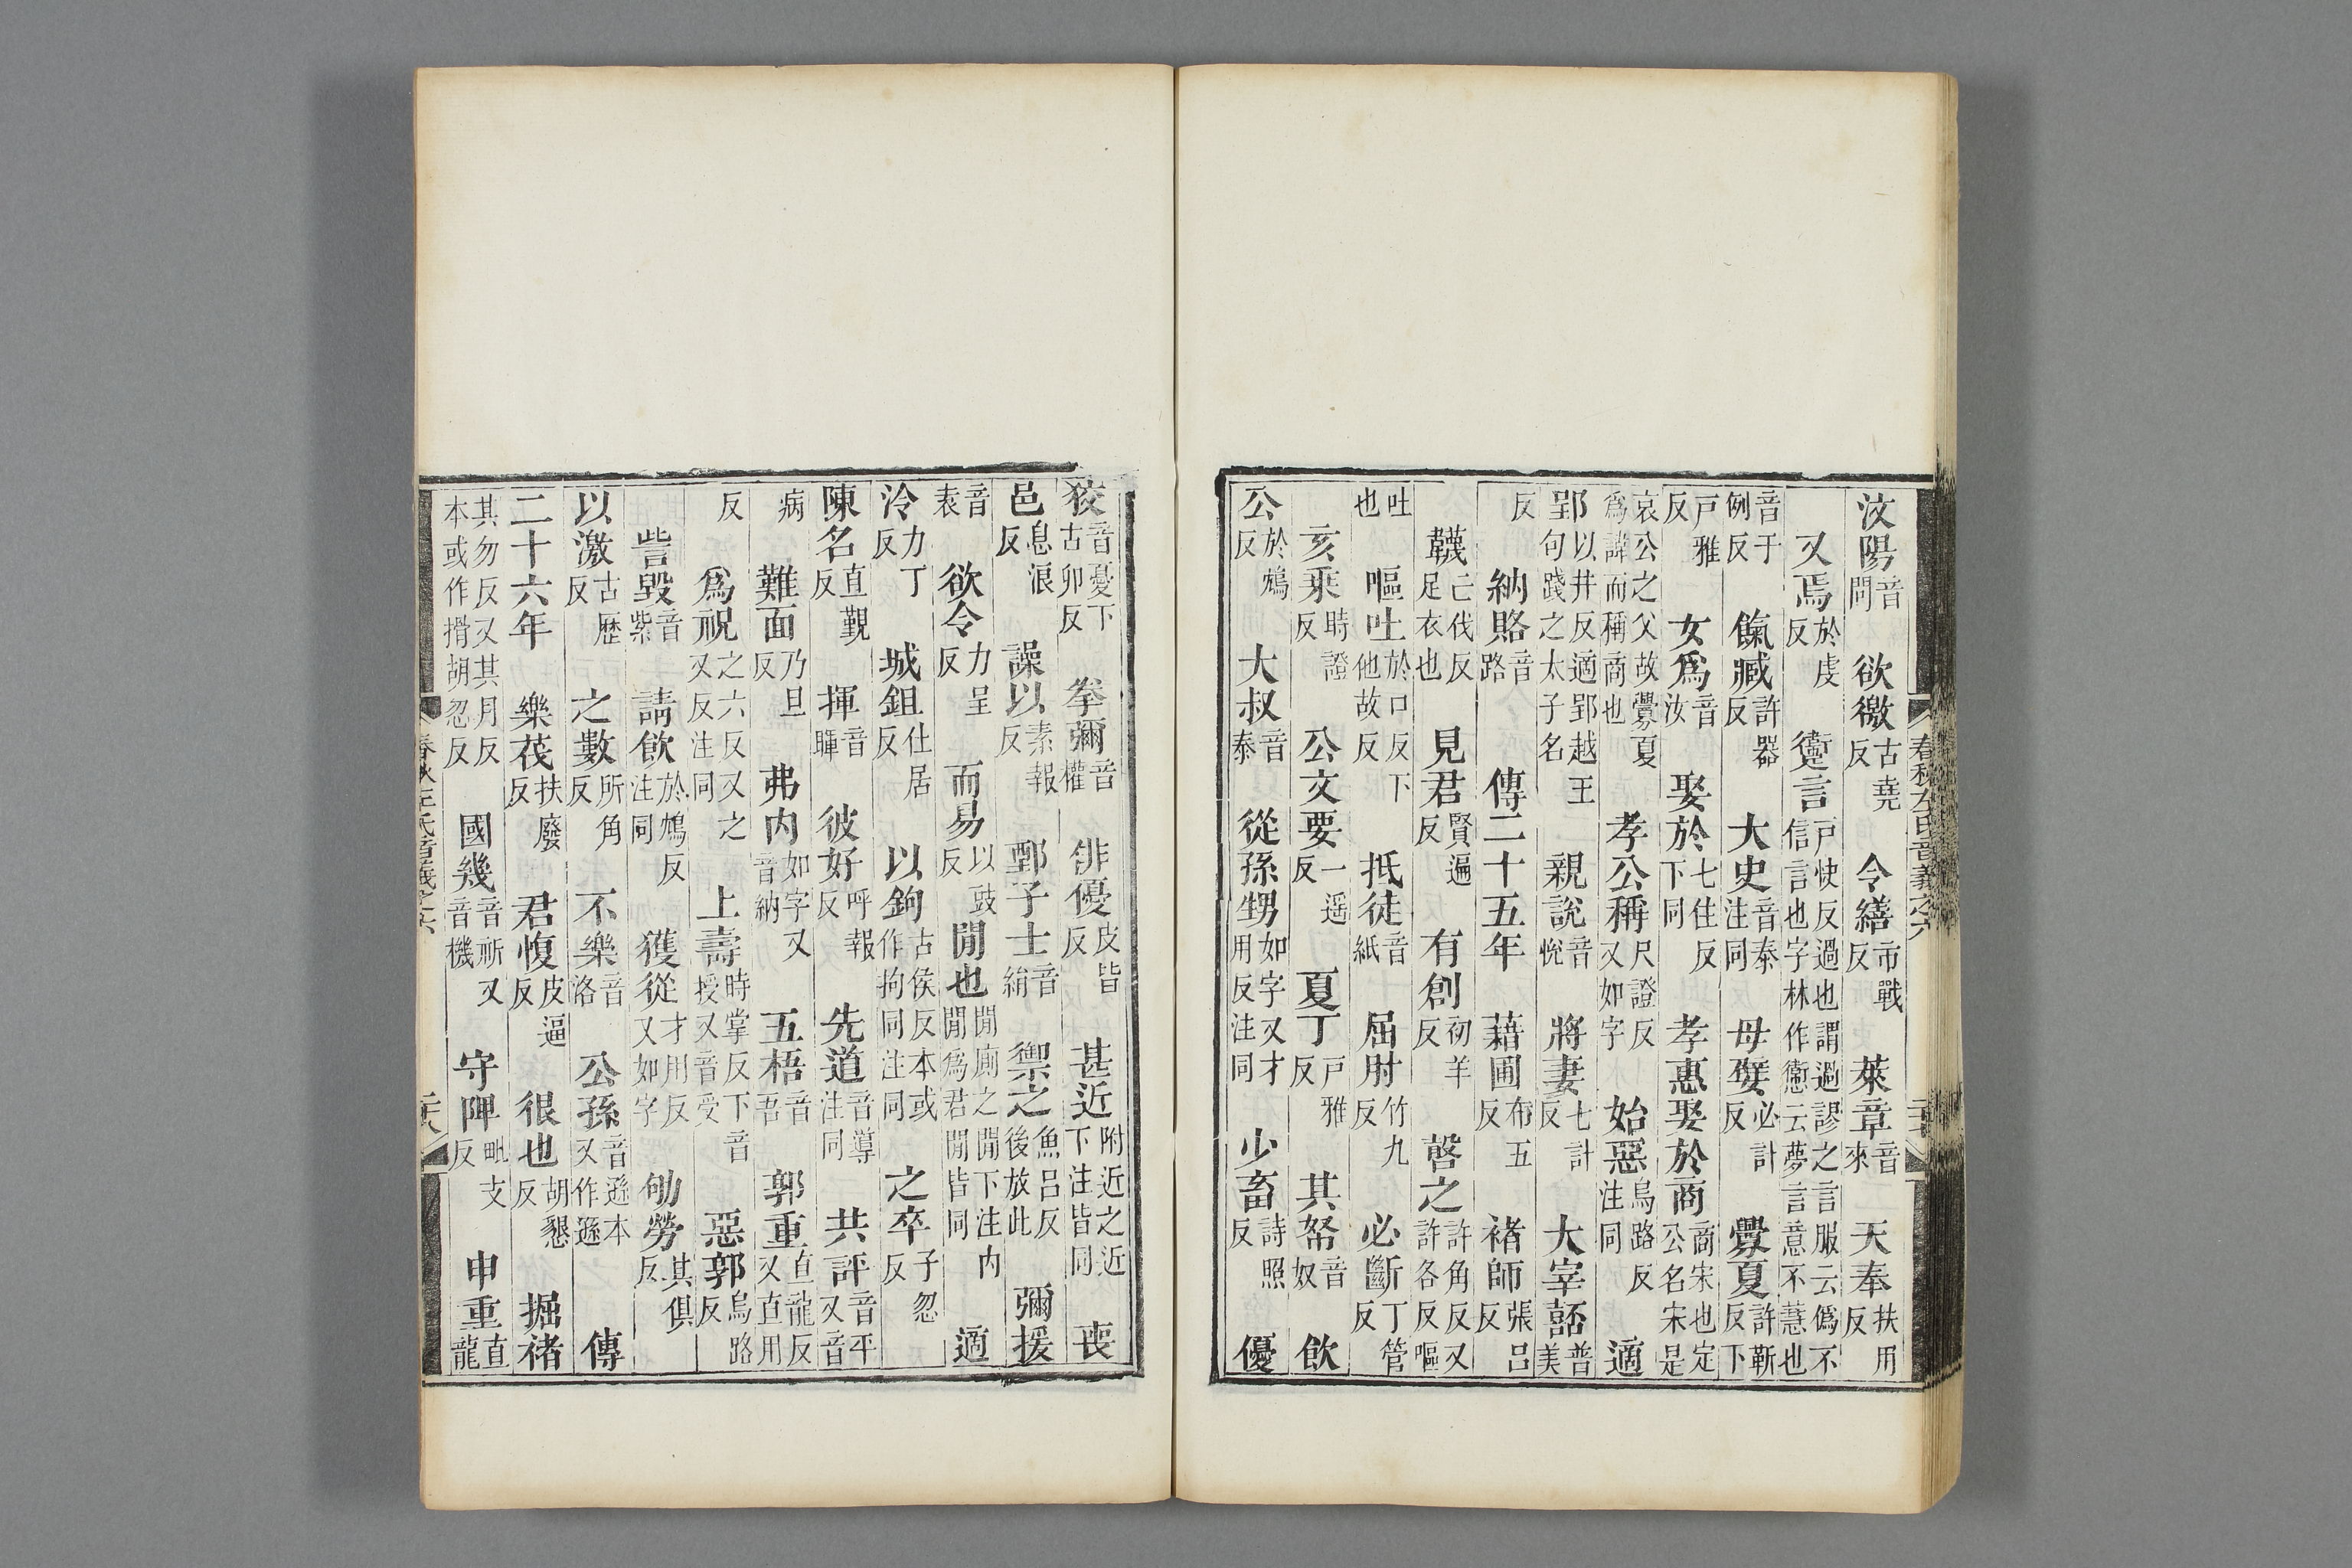 汶陽音問　欲徼古堯反　令繕市戰反　萊章音來　天奉扶用反
又焉於虔反　躗言戸快反過也謂過謬之言服云偽不信言也字林作㦣云夢言意不慧也
音于例反　餼臧許器反　大史音泰注同　母嬖必計反　釁夏許靳反下
戸雅反　女爲音汝　娶於七住反下同　孝惠娶於商商宋也定公名宋是
哀公之父故釁夏爲諱而稱商也　孝公稱尺證反又如字　始惡烏路反注同　適
郢以井反適郢越王句踐之太子名　親說音悅　將妻七計反　大宰嚭普美
反　納賂音路　傳二十五年　藉圃布五反　褚師張呂反
韈亡伐反足衣也　見君賢遍反　有創初羊反　㱿之許角反又許各反嘔
吐也　嘔吐於口反下他故反　抵徒音紙　屈肘竹九反　必斷丁管反
亥乘時證反　公文要一遥反　夏丁戸雅反　其帑音奴　飲
公於鴆反　大叔音泰　從孫甥如字又才用反注同　少畜詩照反　優
春秋左氏音義之六
狡音憂下古卯反　拳彌音權　俳優皮皆反　甚近附近之近下注皆同　喪
邑息浪反　譟以素報反　鄄子士音絹　禦之魚呂反後放此　彌援
音表　欲令力呈反　而易以豉反　閒也閒廁之閒下注内閒爲君閒皆同　適
泠力丁反　城鉏仕居反　以鉤古侯反本或作拘同注同　之卒子忽反
陳名直覲反　揮音暉　彼好呼報反　先道音導注同　共評音平又音
病　難面乃旦反　弗内如字又音納　五梧音吾　郭重直龍反又直用
反　爲祝之六反又之又反注同　上壽時掌反下音授又音受　惡郭烏路反
訾毀音紫　請飲於鴆反注同　獲從才用反又如字　劬勞其俱反
以激古歷反　之數所角反　不樂音洛　公孫音遜本又作遜　傳
二十六年　樂茷扶廢反　君愎皮逼反　很也胡懇反　掘褚
其勿反又其月反本或作搰胡忽反　國幾音祈又音機　守陴毗支反　申重直龍
春秋左氏音義之六